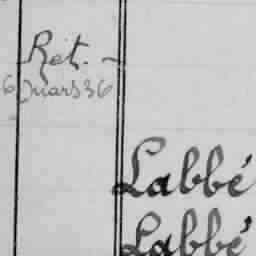 Ret. -
6 Mars 36
Labbé
Labbé